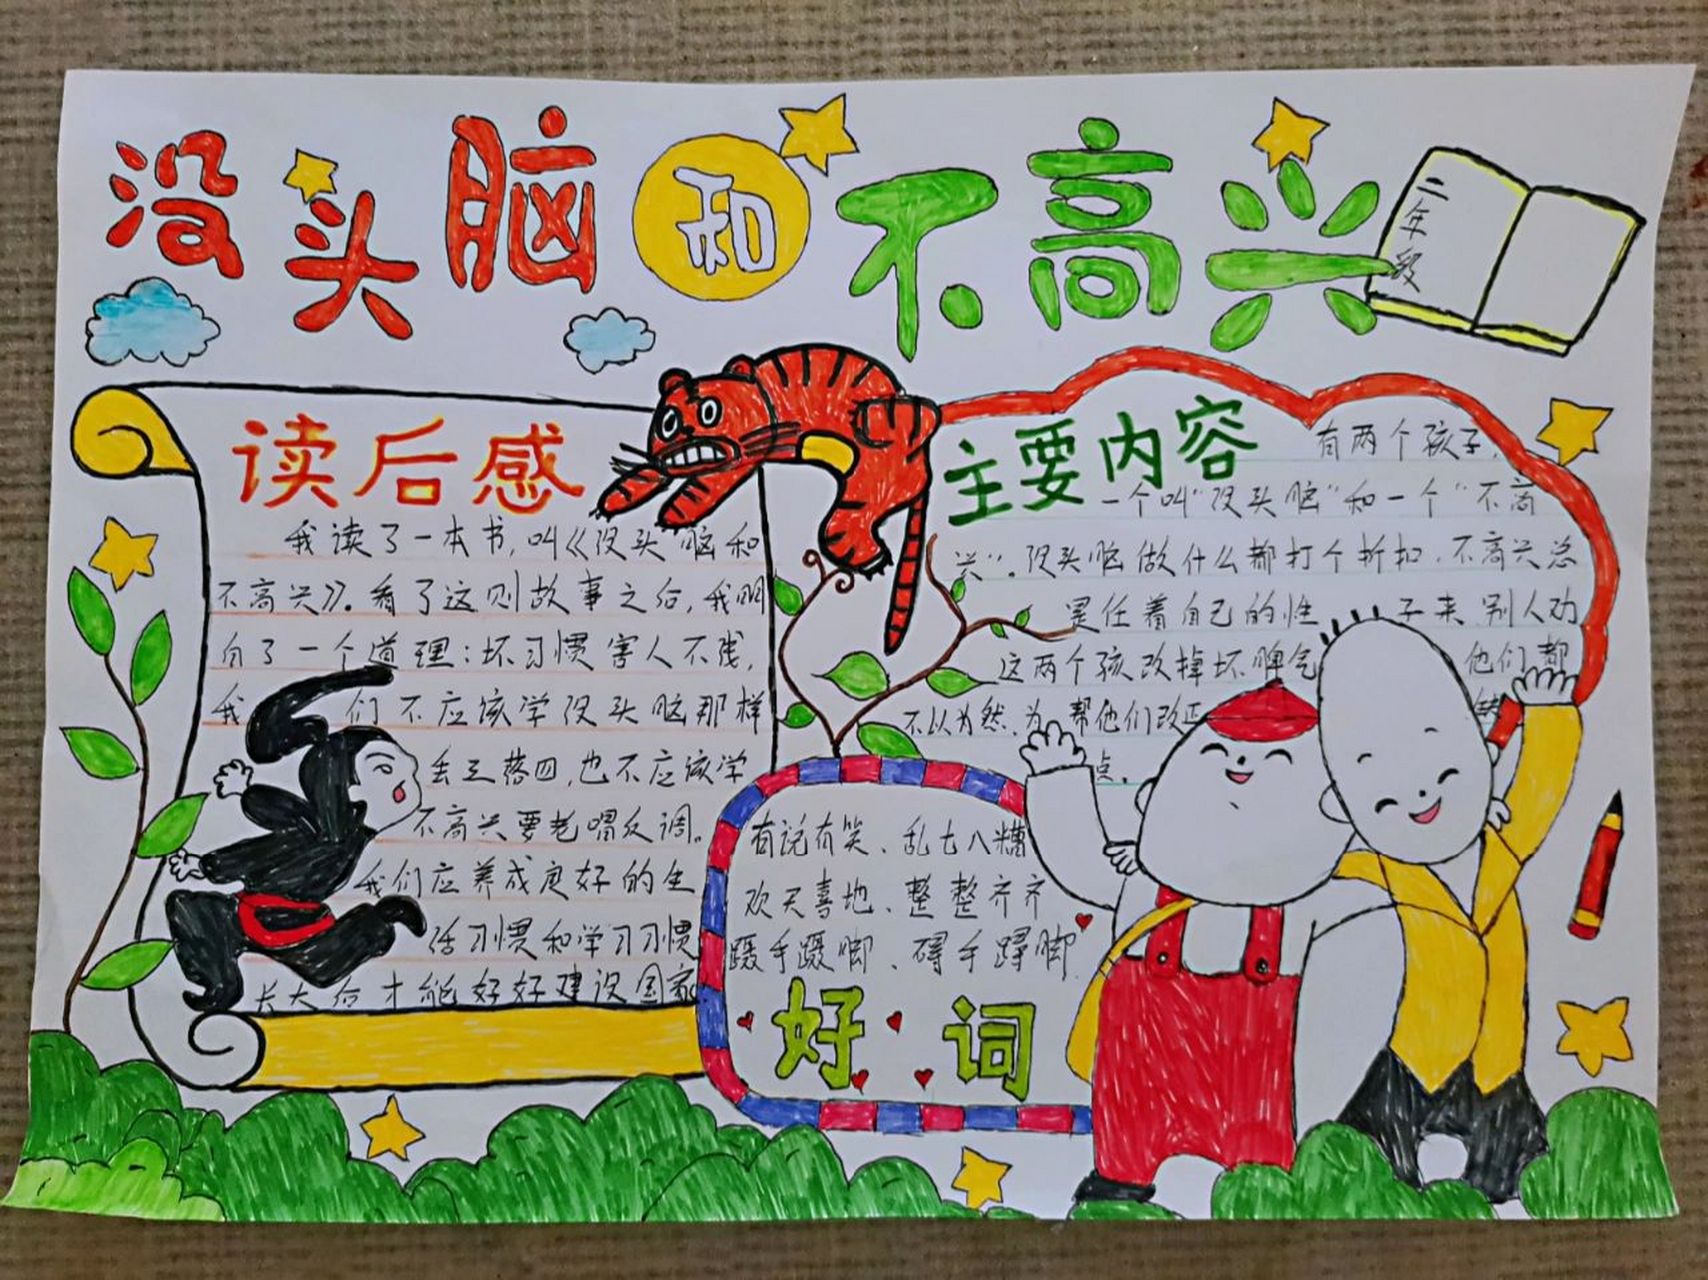 没头脑和不高兴
二年段
读后感
我读了一本书,叫《没头脑和
不高兴》。看了这则故事之后,我明
白了一个道理:坏习惯害人不浅,
我们不应该学没头脑那样
丢三落四,也不应该学
不高兴要老唱反调。
我们应养成良好的生
活习惯和学习习惯
长大后才能好好建设国家
主要内容
有两个孩子,
一个叫“没头脑”和一个“不高
兴”。没头脑做什么都打个折扣,不高兴总
是任着自己的性子来,别人劝
这两个孩改掉坏脾气他们都
不以为然,为帮他们改正缺
点.
有说有笑、乱七八糟
欢天喜地、整整齐齐
蹑手蹑脚、碍手蹲脚
好词